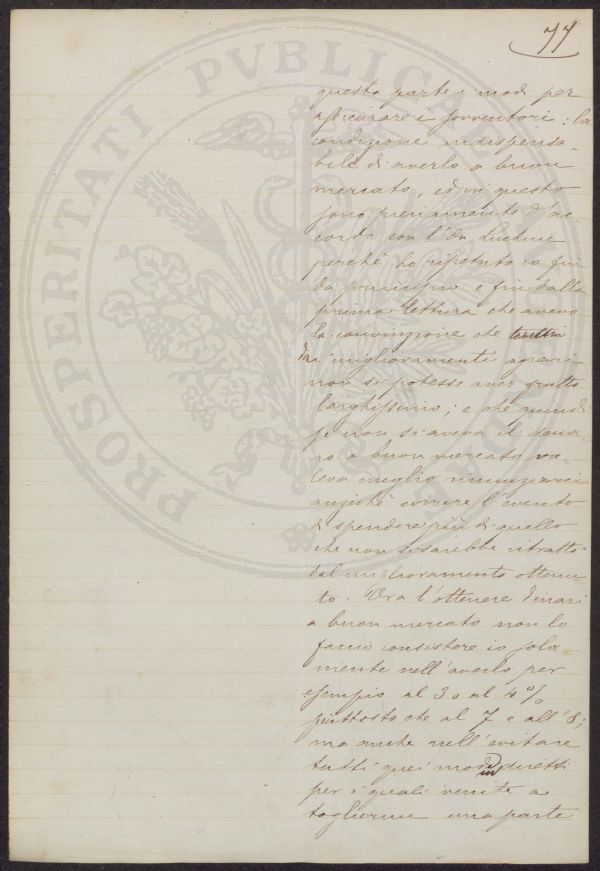 77
questa parte i modi per
assicurare i sovventori; la
condizione indispensa-
bile di averlo a buon
mercato, ed in questo
sono pienamente d'ac
cordo con l'On. Luchini
perchè ho ripetuto io fin
da principio e fin dalla
prima lettura che avevo
la convinzione che
dai miglioramenti agrari
non si potesse aver frutto
larghissimo; e che quindi
se non si aveva il dena-
ro a buon mercato va-
leva meglio rinunziarci
anzichè correre l'evento
di spendere più di quello
che non si sarebbe ritratto
dal miglioramento ottenu-
to. Ora l'ottenere dinari
a buon mercato non lo
faccio consistere io sola-
mente nell'averlo per
esempio al 3 o al 4%
piuttosto che al 7 e all'8;
ma anche nell'evitare
tutti quei modi indiretti
per i quali venite a
togliermi una parte
PROSPERITATI PVBLICAE